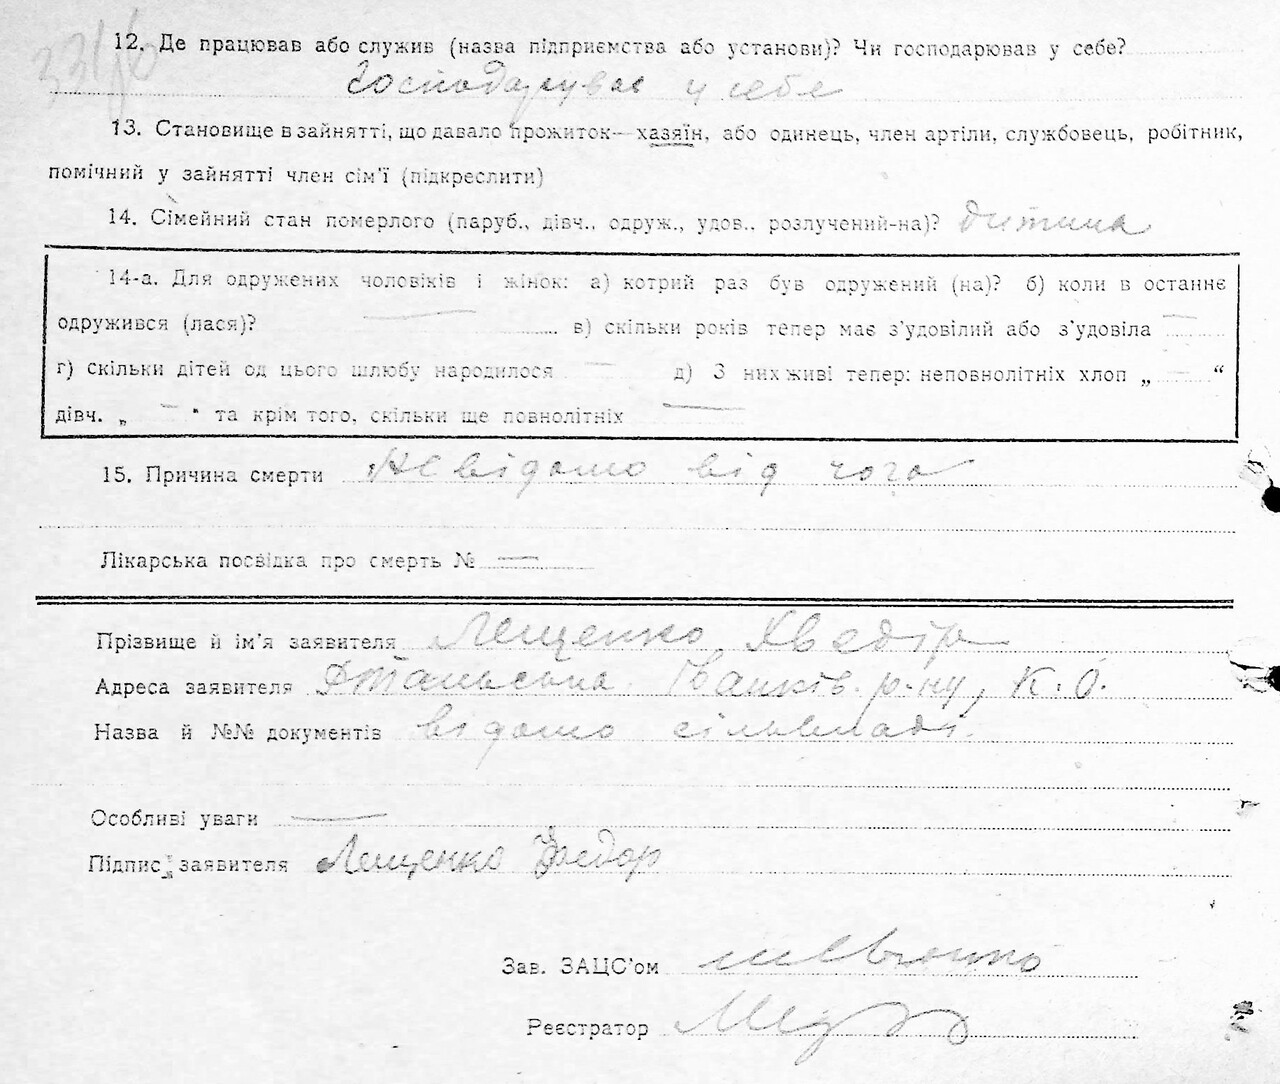 12. Де працював або служив (назва підприємства або установи)? Чи господарював у себе?
Господарував у себе
13. Становище в зайнятті, що давало прожиток — хазяїн, або одинець, член артіли, службовець, робітник,
помічний у зайнятті член сім'ї (підкреслити)
14. Сімейний стан померлого (паруб., дівч., одруж., удов., розлучений-на)? Дитина
14-а. Для одружених чоловіків і жінок: а) котрий раз був одружений (на)? б) коли в останнє
одружився (лася)? — в) скільки років тепер має з'удовілий або з'удовіла —
г) скільки дітей од цього шлюбу народилося — д) З них живі тепер: неповнолітніх хлоп „ — “
дівч. „ — " та крім того, скільки ще повнолітніх —
15. Причина смерти Невідомо від чого
Лікарська посвідка про смерть № —
Прізвище й ім'я заявителя Лещенко Хведір
Адреса заявителя Іванків. р-ну, К. О.
Назва й №№ документів відомо сільвладі.
Особливі уваги —
Підпис заявителя Лещенко Федор
Зав. ЗАЦС'ом
Реєстратор